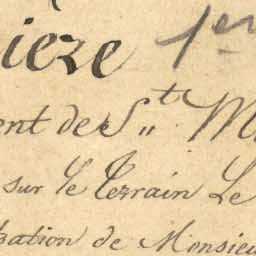 ieze 1er
ent de St. M
sur le Terrain Le
sation de Monsieu